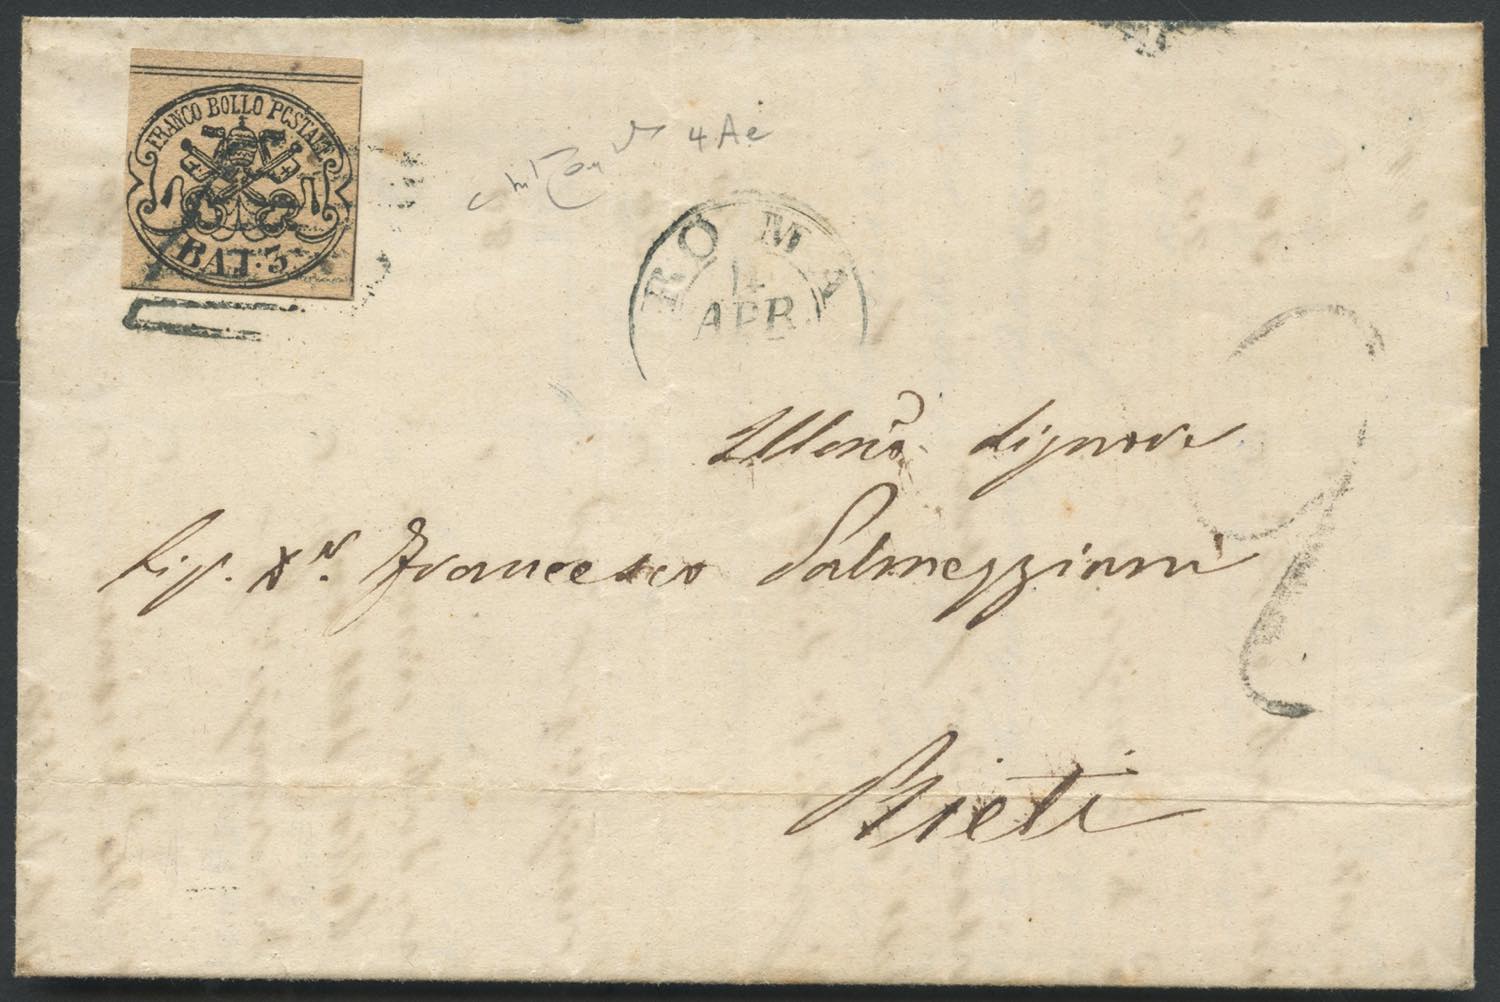 FRANCO BOLLO POSTALE
BAJ. 3
4Ae
ROMA
14
APR
Illmo Signore
Sig. Dr. Francesco Salmeggiani
Rieti